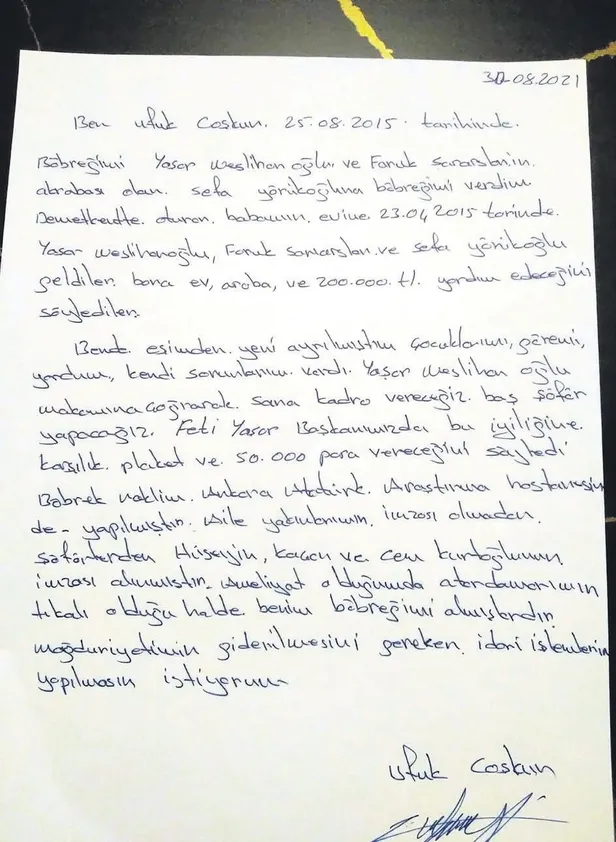 30.08.2021
Ben ufuk Coskun. 25.08.2015. tarihinde.
Böbreğimi Yaşar Meslihan oğlu ve Faruk Sarıarslanın.
abrabası olan. sefa yörükoğluna böbreğimi verdim
Demetkentte. oturan. babamın. evine 23.04 2015 tarinde.
Yaşar Meslihanoğlu, Faruk Sarıarslan.ve sefa yörükoğlu
geldiler. bana ev, araba, ve 200.000. tl. yardım edeceğini
söylediler.
Bende. eşimden. yeni ayrılmıştım çocuklarımı, göremi,
yordum, kendi sorunlarım. vardı. Yaşar Meslihan oğlu
makamına çağırarak. sana kadro vereceğiz. baş şöför
yapacağız. Feti Yaşar Başkanımızda bu iyiliğine.
karşılık. plaket ve. 50.000 para vereceğini söyledi
Böbrek naklim. Ankara Atatürk. Araştırma hastanesin
de - yapılmıştır. Aile yakınlarımın. imzası olmadan.
şöförlerden Hüseyin, kaçan ve cem kurtoğlunun.
imzası alınmıştır. Ameliyat olduğumda atardamarımın
tıkalı olduğu halde. benim böbreğimi almışlardır.
mağduriyetimin giderilmesini gereken. idari işlemlerin
yapılmasın istiyorum
ufuk Coskun